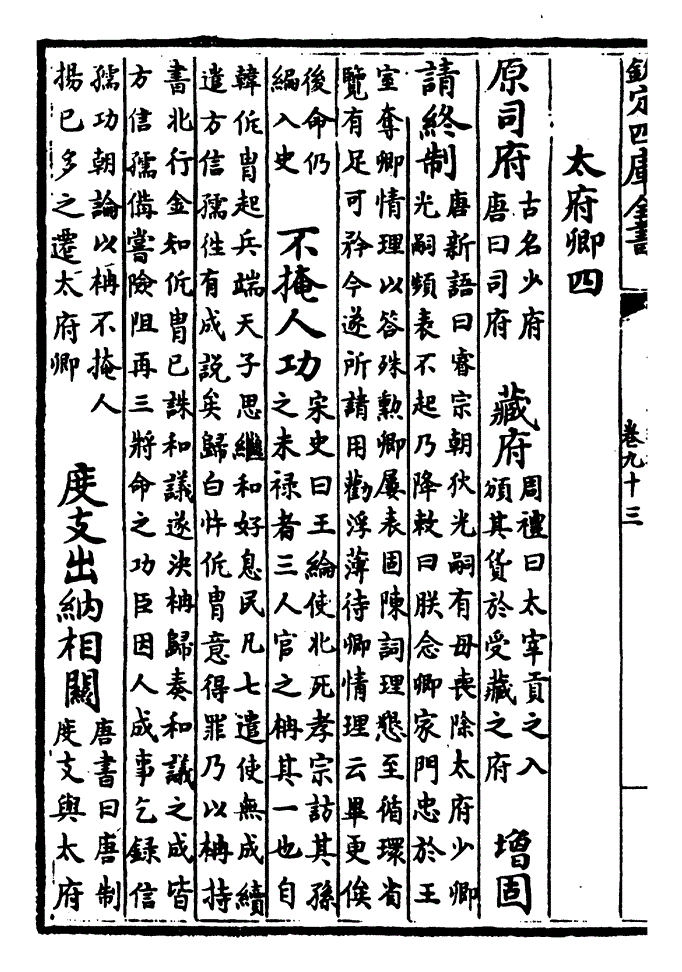 欽定四庫全書
卷九十三
太府卿四
原司府
古名少府
唐曰司府
藏府
周禮曰太宰貢之入
頒其貨於受藏之府
增固
請終制
唐新語曰睿宗朝狄光嗣有母喪除太府少卿
光嗣頻表不起乃降敕曰朕念卿家門忠於王
室奪卿情理以答殊勲卿屢表固陳詞理懇至循環省
覽有足可矜今遂所請用勸浮薄待卿情理云畢更俟
後命仍
編入史
不掩人功
宋史曰王綸使北死孝宗訪其孫
之未禄者三人官之柟其一也自
韓侂胄起兵端天子思繼和好息民凡七遣使無成績
遣方信孺徃有成説矣歸白忤侂胄意得罪乃以柟持
書北行金知侂胄已誅和議遂决柟歸奏和議之成皆
方信孺備嘗險阻再三將命之功臣因人成事乞録信
孺功朝論以柟不掩人
揚已多之遷太府卿
度支出納相關
唐書曰唐制
度支與太府